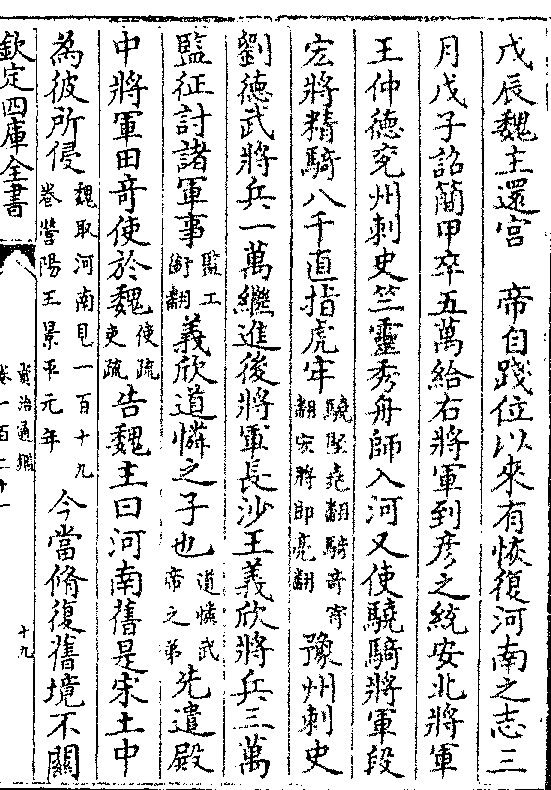 戊辰魏主還宮　帝自踐位以來有恢復河南之志三
月戊子詔簡甲卒五萬給右將軍到彥之統安北將軍
王仲德兖州刺史竺靈秀舟師入河又使驍騎將軍段
宏將精騎八千直指虎牢驍堅堯翻騎奇寄翻宏將即亮翻豫州刺史
劉德武將兵一萬繼進後將軍長沙王義欣將兵三萬
監征討諸軍事監工銜翻義欣道憐之子也道憐武帝之弟先遣殿
中將軍田奇使於魏使疏吏疏告魏主曰河南舊是宋土中
為彼所侵魏取河南見一百十九卷營陽王景平元年今當脩復舊境不關
欽定四庫全書
資治通鑑
卷一百二十一
十九